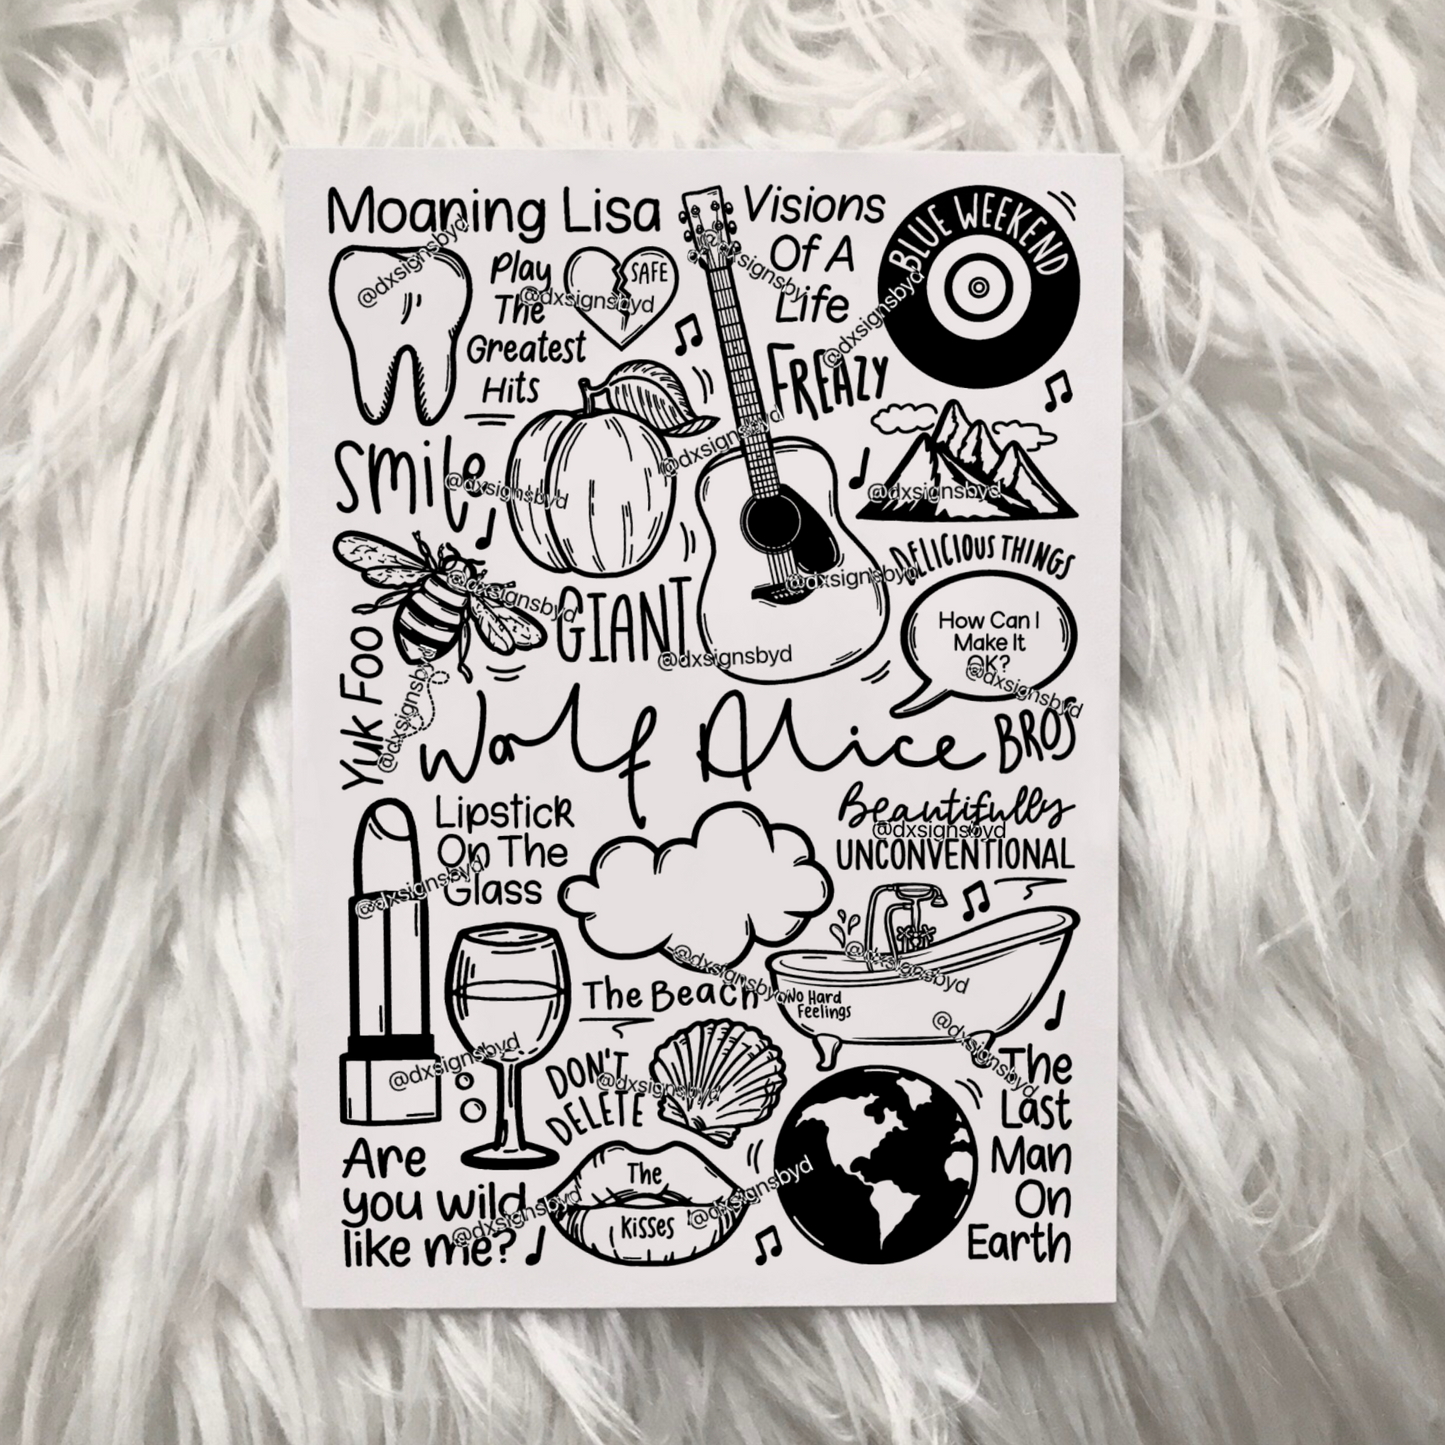 Moaning Lisa
Play
The
Greatest
Hits
SAFE
Visions
Of A
Life
BLUE WEEKEND
FREAZY
Smile
GIANT
DELICIOUS THINGS
How Can I
Make It
OK?
Yuk Foo
Wolf Alice
BROS
Lipstick
On The
Glass
Beautifully
UNCONVENTIONAL
The Beach
No Hard
Feelings
DON'T
DELETE
The
Kisses
Are
you wild
like me?
The
Last
Man
On
Earth
@dxsignsbyd
@dxsignsbyd
@dxsignsbyd
@dxsignsbyd
@dxsignsbyd
@dxsignsbyd
@dxsignsbyd
@dxsignsbyd
@dxsignsbyd
@dxsignsbyd
@dxsignsbyd
@dxsignsbyd
@dxsignsbyd
@dxsignsbyd
@dxsignsbyd
@dxsignsbyd
@dxsignsbyd
@dxsignsbyd
@dxsignsbyd
@dxsignsbyd
@dxsignsbyd
@dxsignsbyd